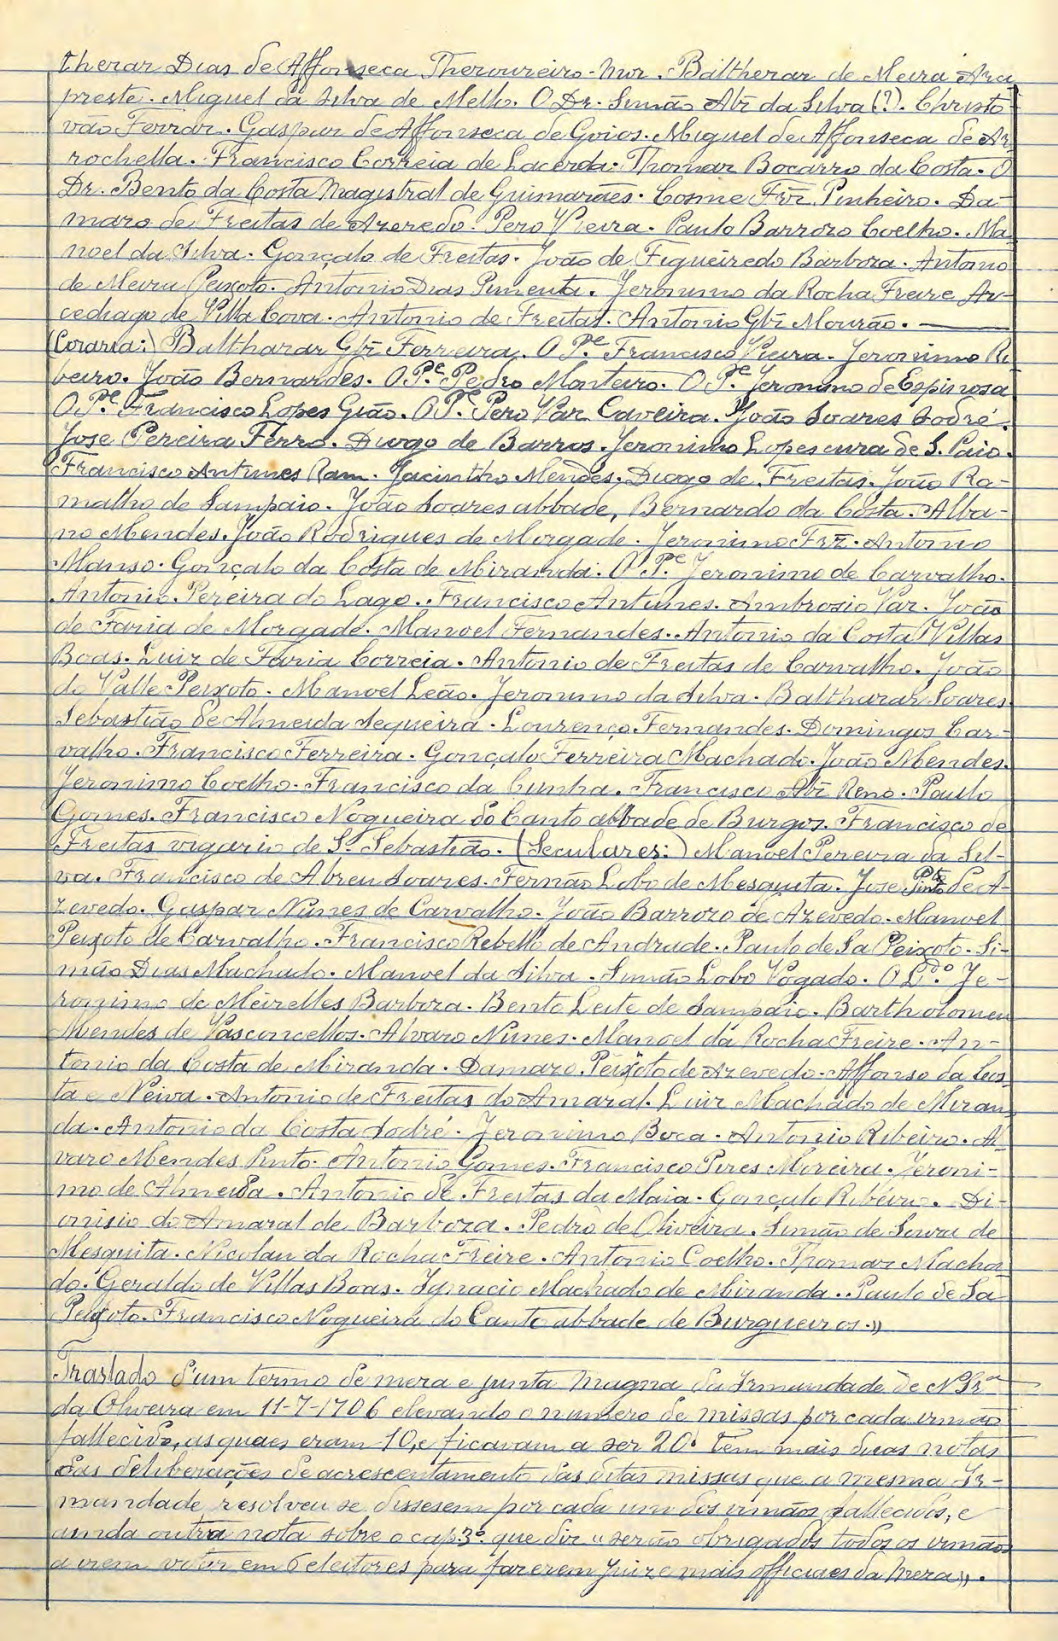 therar Dias de Affonseca Theroureiro-Mor. Baltherar de Meira Arci
preste. Miguel da Silva de Mello. O Dr. Simão Abr da Silva (?). Christo
vão Ferrar. Gaspar de Affonseca de Goios. Miguel de Affonseca de Ar
rochella. Francisco Correia de Lacerda. Thomar Bocarro da Costa. O
Dr. Bento da Costa Magistral de Guimarães. Cosme Frz Pinheiro. Da-
maro de Freitas de Azeredo. Pero Vieira. Paulo Barrozo Coelho. Ma
noel da Silva. Gonçalo de Freitas. João de Figueiredo Barboza. Antonio
de Meira Peixoto. Antonio Dias Pimenta. Jeronimo da Rocha Freire Ar-
cediago de Villa Cova. Antonio de Freitas. Antonio Glz Mourão. ———
(Coraria:) Baltharar Glz Ferreira. O Pe Francisco Vieira. Jeronimo Ri
beiro. João Bernardes. O Pe Pedro Monteiro. O Pe Jeronimo de Espinosa
O Pe Francisco Lopes Gião. O Pe Pero Var Caveira. João Soares Sodré.
Jose Pereira Ferro. Diogo de Barros. Jeronimo Lopes cura de S. Paio.
Francisco Antunes Ram. Jacintho Mendes. Diogo de Freitas. João Ra-
malho de Sampaio. João Soares abbade, Bernardo da Costa. Alba-
no Mendes. João Rodrigues de Morgade. Jeronimo Frz. Antonio
Manso. Gonçalo da Costa de Miranda. O Pe Jeronimo de Carvalho.
Antonio Pereira do Lago. Francisco Antunes. Ambrosio Var. João
de Faria de Morgade. Manoel Fernandes. Antonio da Costa Villas
Boas. Luiz de Faria Correia. Antonio de Freitas de Carvalho. João
do Valle Peixoto. Manoel Leão. Jeronimo da Silva. Baltharar Soares
Sebastião de Almeida Sequeira. Lourenço Fernandes. Domingos Car-
valho. Francisco Ferreira. Gonçalo Ferreira Machado. João Mendes.
Jeronimo Coelho. Francisco da Cunha. Francisco Abr Reno. Paulo
Gomes. Francisco Nogueira do Canto abbade de Burgos. Francisco de
Freitas vigario de S. Sebastião. (Seculares:) Manoel Pereira da Sil-
va. Francisco de Abreu Soares. Fernão Lobo de Mesquita. Jose Pinto de A-
zevedo. Gaspar Nunes de Carvalho. João Barrozo de Azevedo. Manoel
Peixoto de Carvalho. Francisco Rebello de Andrade. Paulo de Sa Peixoto. Si-
mão Dias Machado. Manoel da Silva. Simão Lobo Vogado. O Ldo. Je-
ronimo de Meirelles Barboza. Bento Leite de Sampaio. Bartholomeu
Mendes de Vasconcellos. Alvaro Nunes. Manoel da Rocha Freire. An-
tonio da Costa de Miranda. Damazo Peixoto de Azevedo. Affonso da Cos
ta e Neiva. Antonio de Freitas do Amaral. Luir Machado de Miran
da. Antonio da Costa Sodré. Jeronimo Boca. Antonio Ribeiro. Al
varo Mendes Pinto. Antonio Gomes. Francisco Pires Moreira. Jeroni-
mo de Almeida. Antonio de Freitas da Maia. Gonçalo Ribeiro. Di-
onisio do Amaral de Barboza. Pedro de Oliveira. Simão de Souza de
Mesquita. Nicolau da Rocha Freire. Antonio Coelho. Thomar Macha
do. Geraldo de Villas Boas. Ignacio Machado de Miranda. Paulo de Sa
Peixoto. Francisco Nogueira do Canto abbade de Burgueiros.»
Traslado d'um termo de mera e junta magna da Irmandade de N. Sra
da Oliveira em 11-7-1706 elevando o numero de missas por cada irmão
fallecido, as quaes eram 10, e ficavam a ser 20. Tem mais duas notas
das deliberações de acrescentamento das ditas missas que a mesma Ir-
mandade resolveu se dissesem por cada um dos irmãos fallecidos, e
ainda outra nota sobre o cap. 3º que dir «serão obrigados todos os irmãos
a irem votar em 6 eleitores para fazerem juiz e mais officiaes da Mera».